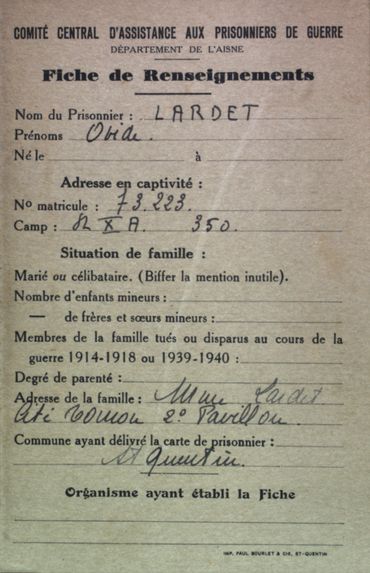 COMITÉ CENTRAL D'ASSISTANCE AUX PRISONNIERS DE GUERRE
DÉPARTEMENT DE L'AISNE
Fiche de Renseignements
Nom du Prisonnier : LARDET
Prénoms Ovide.
Né le à
Adresse en captivité :
No matricule : 73.223.
Camp : X A. 350.
Situation de famille :
Marié ou célibataire. (Biffer la mention inutile).
Nombre d'enfants mineurs :
— de frères et sœurs mineurs :
Membres de la famille tués ou disparus au cours de la
guerre 1914-1918 ou 1939-1940 :
Degré de parenté :
Adresse de la famille : Mme Lardet
2e Pavillon.
Commune ayant délivré la carte de prisonnier :
St Quentin.
Organisme ayant établi la Fiche
IMP. PAUL BOURLET & CIE, ST-QUENTIN